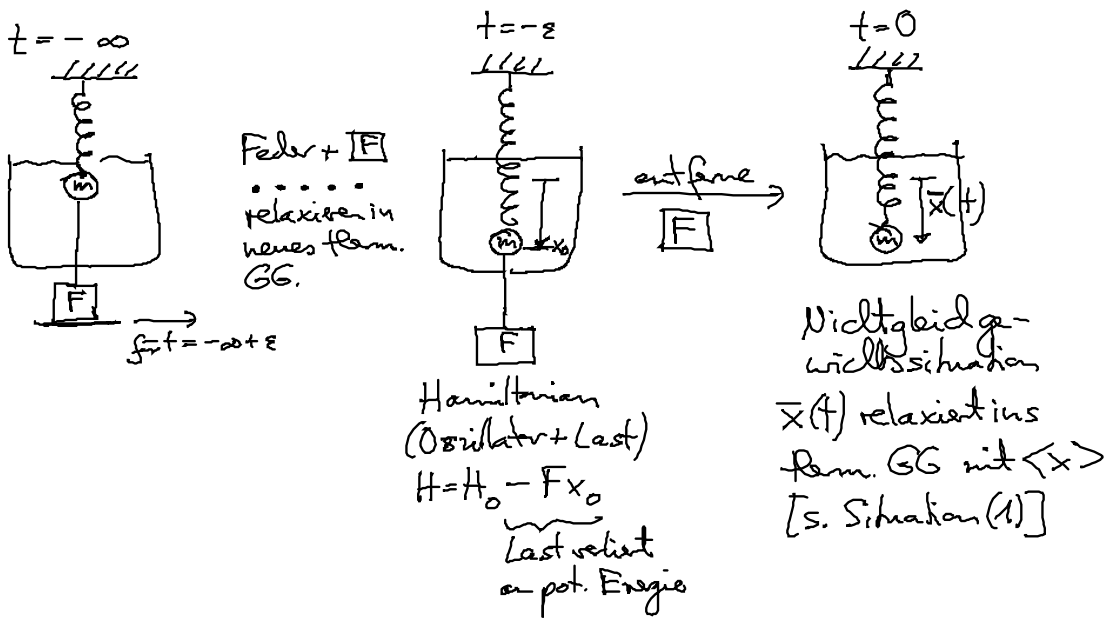 t = - ∞
m
F
für t = -∞+ε
Feder + F
. . . . .
relaxieren in
neues therm.
GG.
t = - ε
m
x₀
F
Hamiltonian
(Oszillator + Last)
H = H₀ - Fx₀
Last verliert
an pot. Energie
entferne
F
t = 0
x̅(t)
m
Nichtgleichge-
wichtssituation
x̅(t) relaxiert ins
therm. GG mit <x>
[s. Situation (1)]